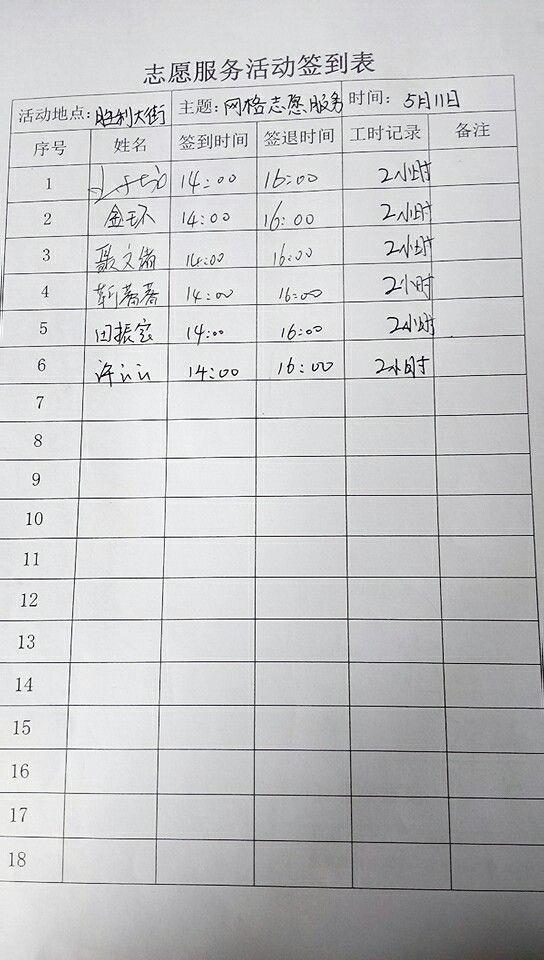 志愿服务活动签到表
活动地点:胜利大街 主题:网格志愿服务 时间: 5月11日
序号 姓名 签到时间 签退时间 工时记录 备注
1 14:00 16:00 2小时
2 金环 14:00 16:00 2小时
3 聂文倩 14:00 16:00 2小时
4 靳蕃蕃 14:00 16:00 2小时
5 田振宽 14:00 16:00 2小时
6 许云云 14:00 16:00 2小时
7
8
9
10
11
12
13
14
15
16
17
18